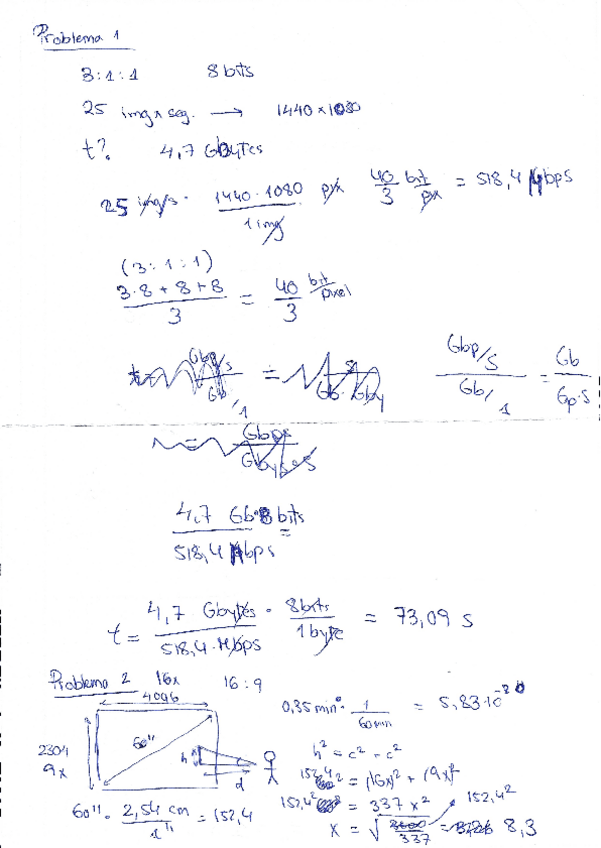 Problema 1
3:1:1 8 bits
25 img x seg. → 1440×1080
t? 4,7 GBytes
25 img/s · 1440·1080 px / 1 img 40/3 bit/px = 518,4 Mbps
(3:1:1)
3·8 + 8 + 8 / 3 = 40/3 bit/pixel
Gbp/s / Gb/1 = Gb / Gp·s
Gbps
4,7 Gb·8 bits / 518,4 Mbps =
t = 4,7 Gbytes / 518,4·Mbps · 8 bits / 1 byte = 73,09 s
Problema 2 16x 16:9
4096
0,35 min · 1 / 60 min = 5,83·10⁻³ º
2304
9x
60"
h
d
h² = c² - c²
152,4² = (16x)² + (9x)²
152,4² = 337 x²
152,4²
60" · 2,54 cm / 1" = 152,4
x = √ / 337 = 8,3